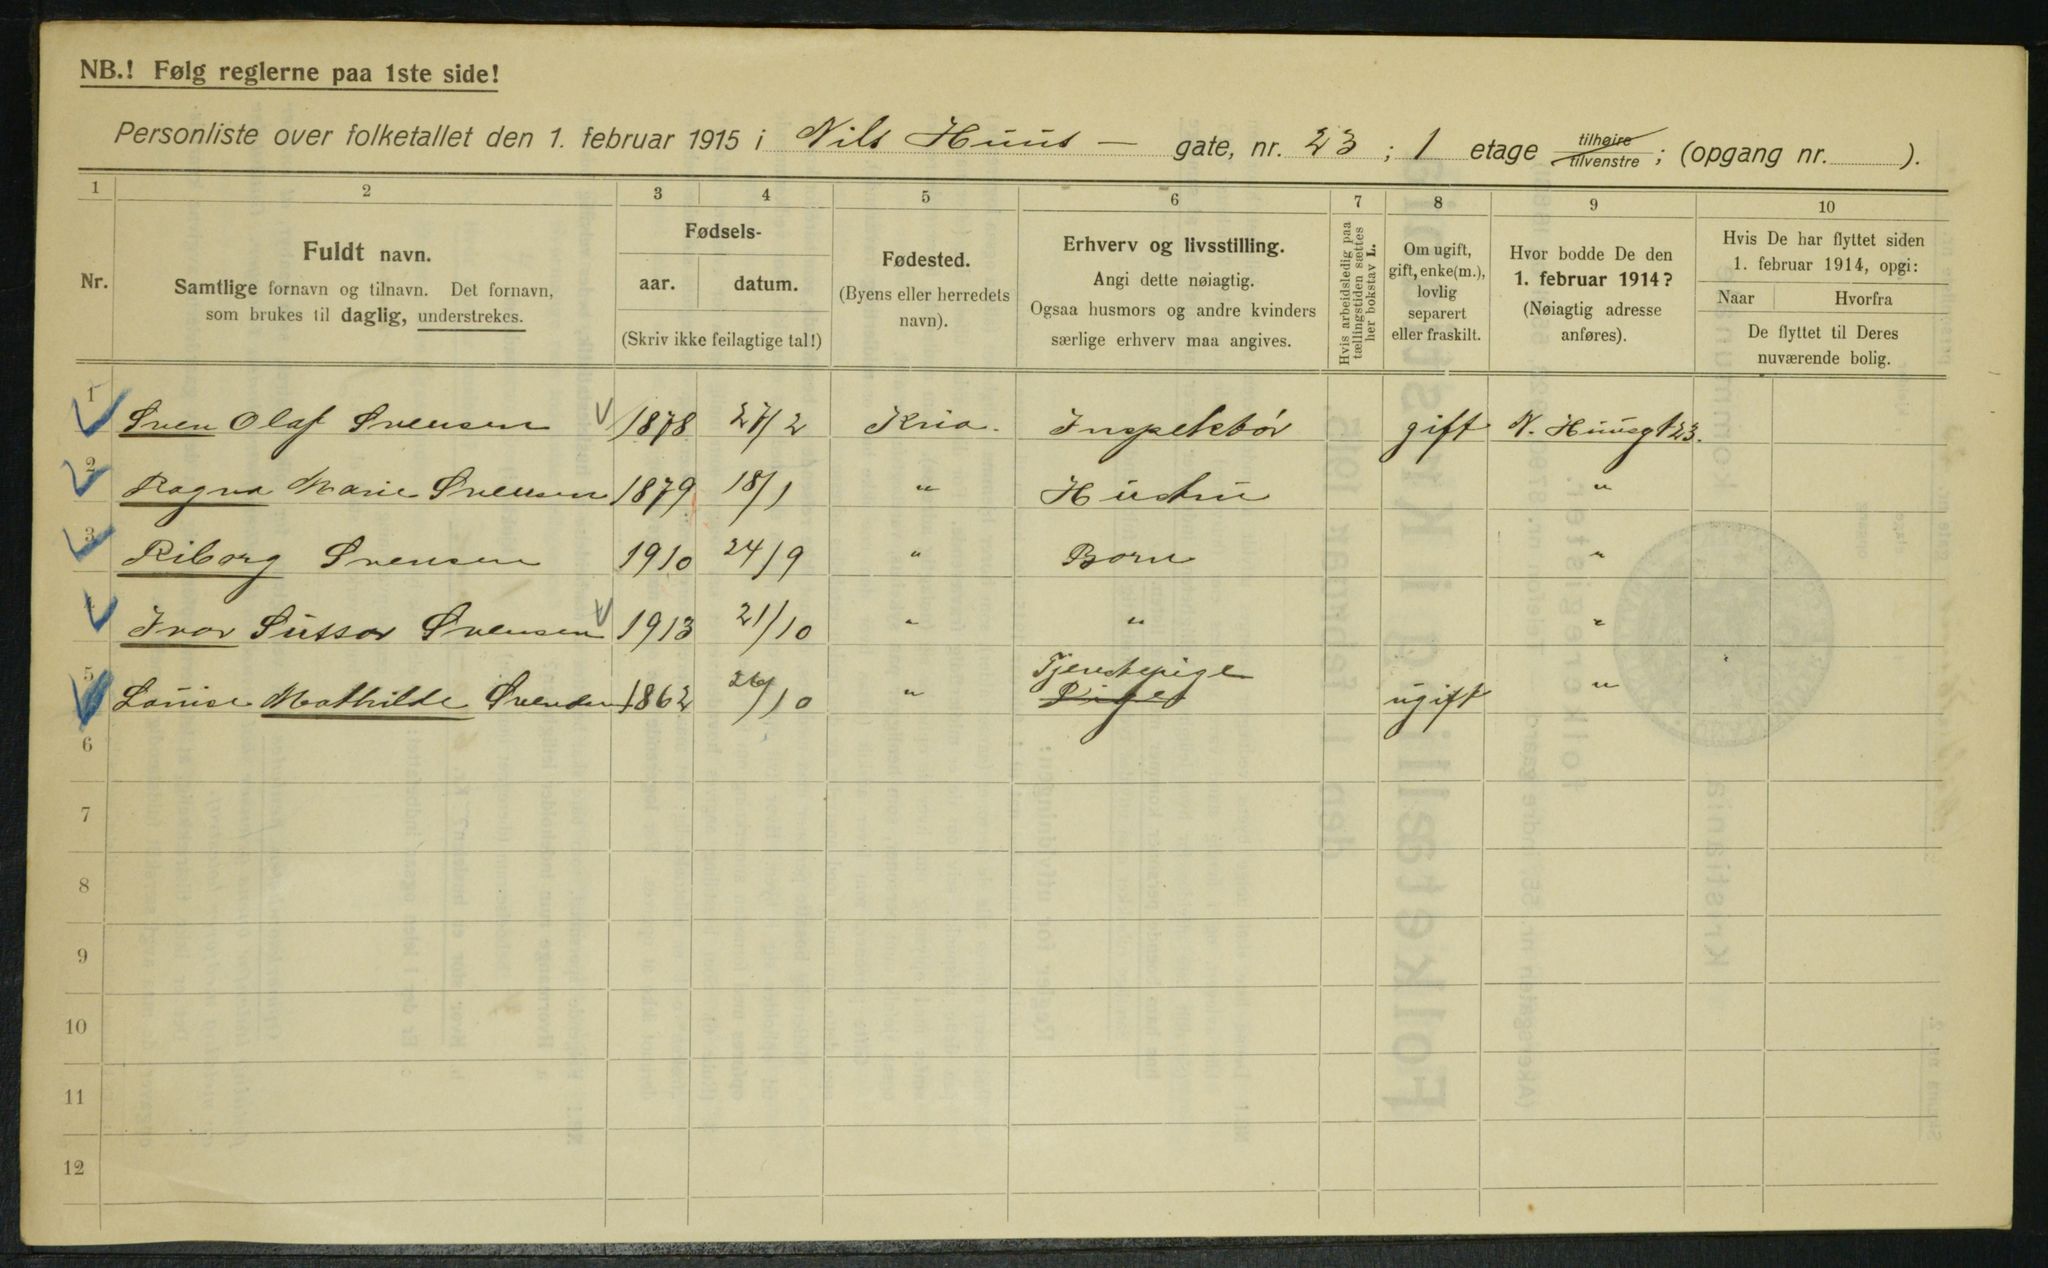 NB.! Følg reglerne paa 1ste side!
Personliste over folketallet den 1. februar 1915 i Nils Huus — gate, nr. 23 ; 1 etage tilhøire tilvenstre ; (opgang nr. ).
1 2 3 4 5 6 7 8 9 10
Nr.
Fuldt navn.
Samtlige fornavn og tilnavn. Det fornavn,
som brukes til daglig, understrekes.
Fødsels-
aar. datum.
(Skriv ikke feilagtige tal!)
Fødested.
(Byens eller herredets
navn).
Erhverv og livsstilling.
Angi dette nøiagtig.
Ogsaa husmors og andre kvinders
særlige erhverv maa angives.
Hvis arbeidsledig paa
tællingstiden sættes
her bokstav L.
Om ugift,
gift, enke(m.),
lovlig
separert
eller fraskilt.
Hvor bodde De den
1. februar 1914?
(Nøiagtig adresse
anføres).
Hvis De har flyttet siden
1. februar 1914, opgi:
Naar Hvorfra
De flyttet til Deres
nuværende bolig.
1 Sven Olaf Svensen 1878 27/2 Kria. Inspektør gift N. Huusgt 23.
2 Ragna Marie Svensen 1879 18/1 " Hustru "
3 Riborg Svensen 1910 24/9 " Barn "
4 Ivar Svensen 1913 21/10 " " "
5 Louise Mathilde Svendsen 1862 26/10 " Tjenstepige ugift "
Pige
6
7
8
9
10
11
12